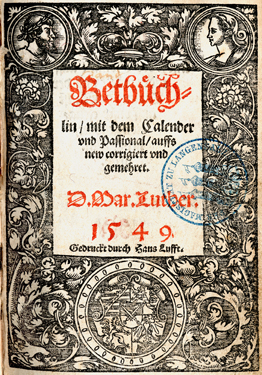 Betbůch-
lin/ mit dem Calender
vnd Passional/ auffs
new corrigiert vnd
gemehret.
D. Mar. Luther.
1549.
Gedruckt durch Hans Lufft.